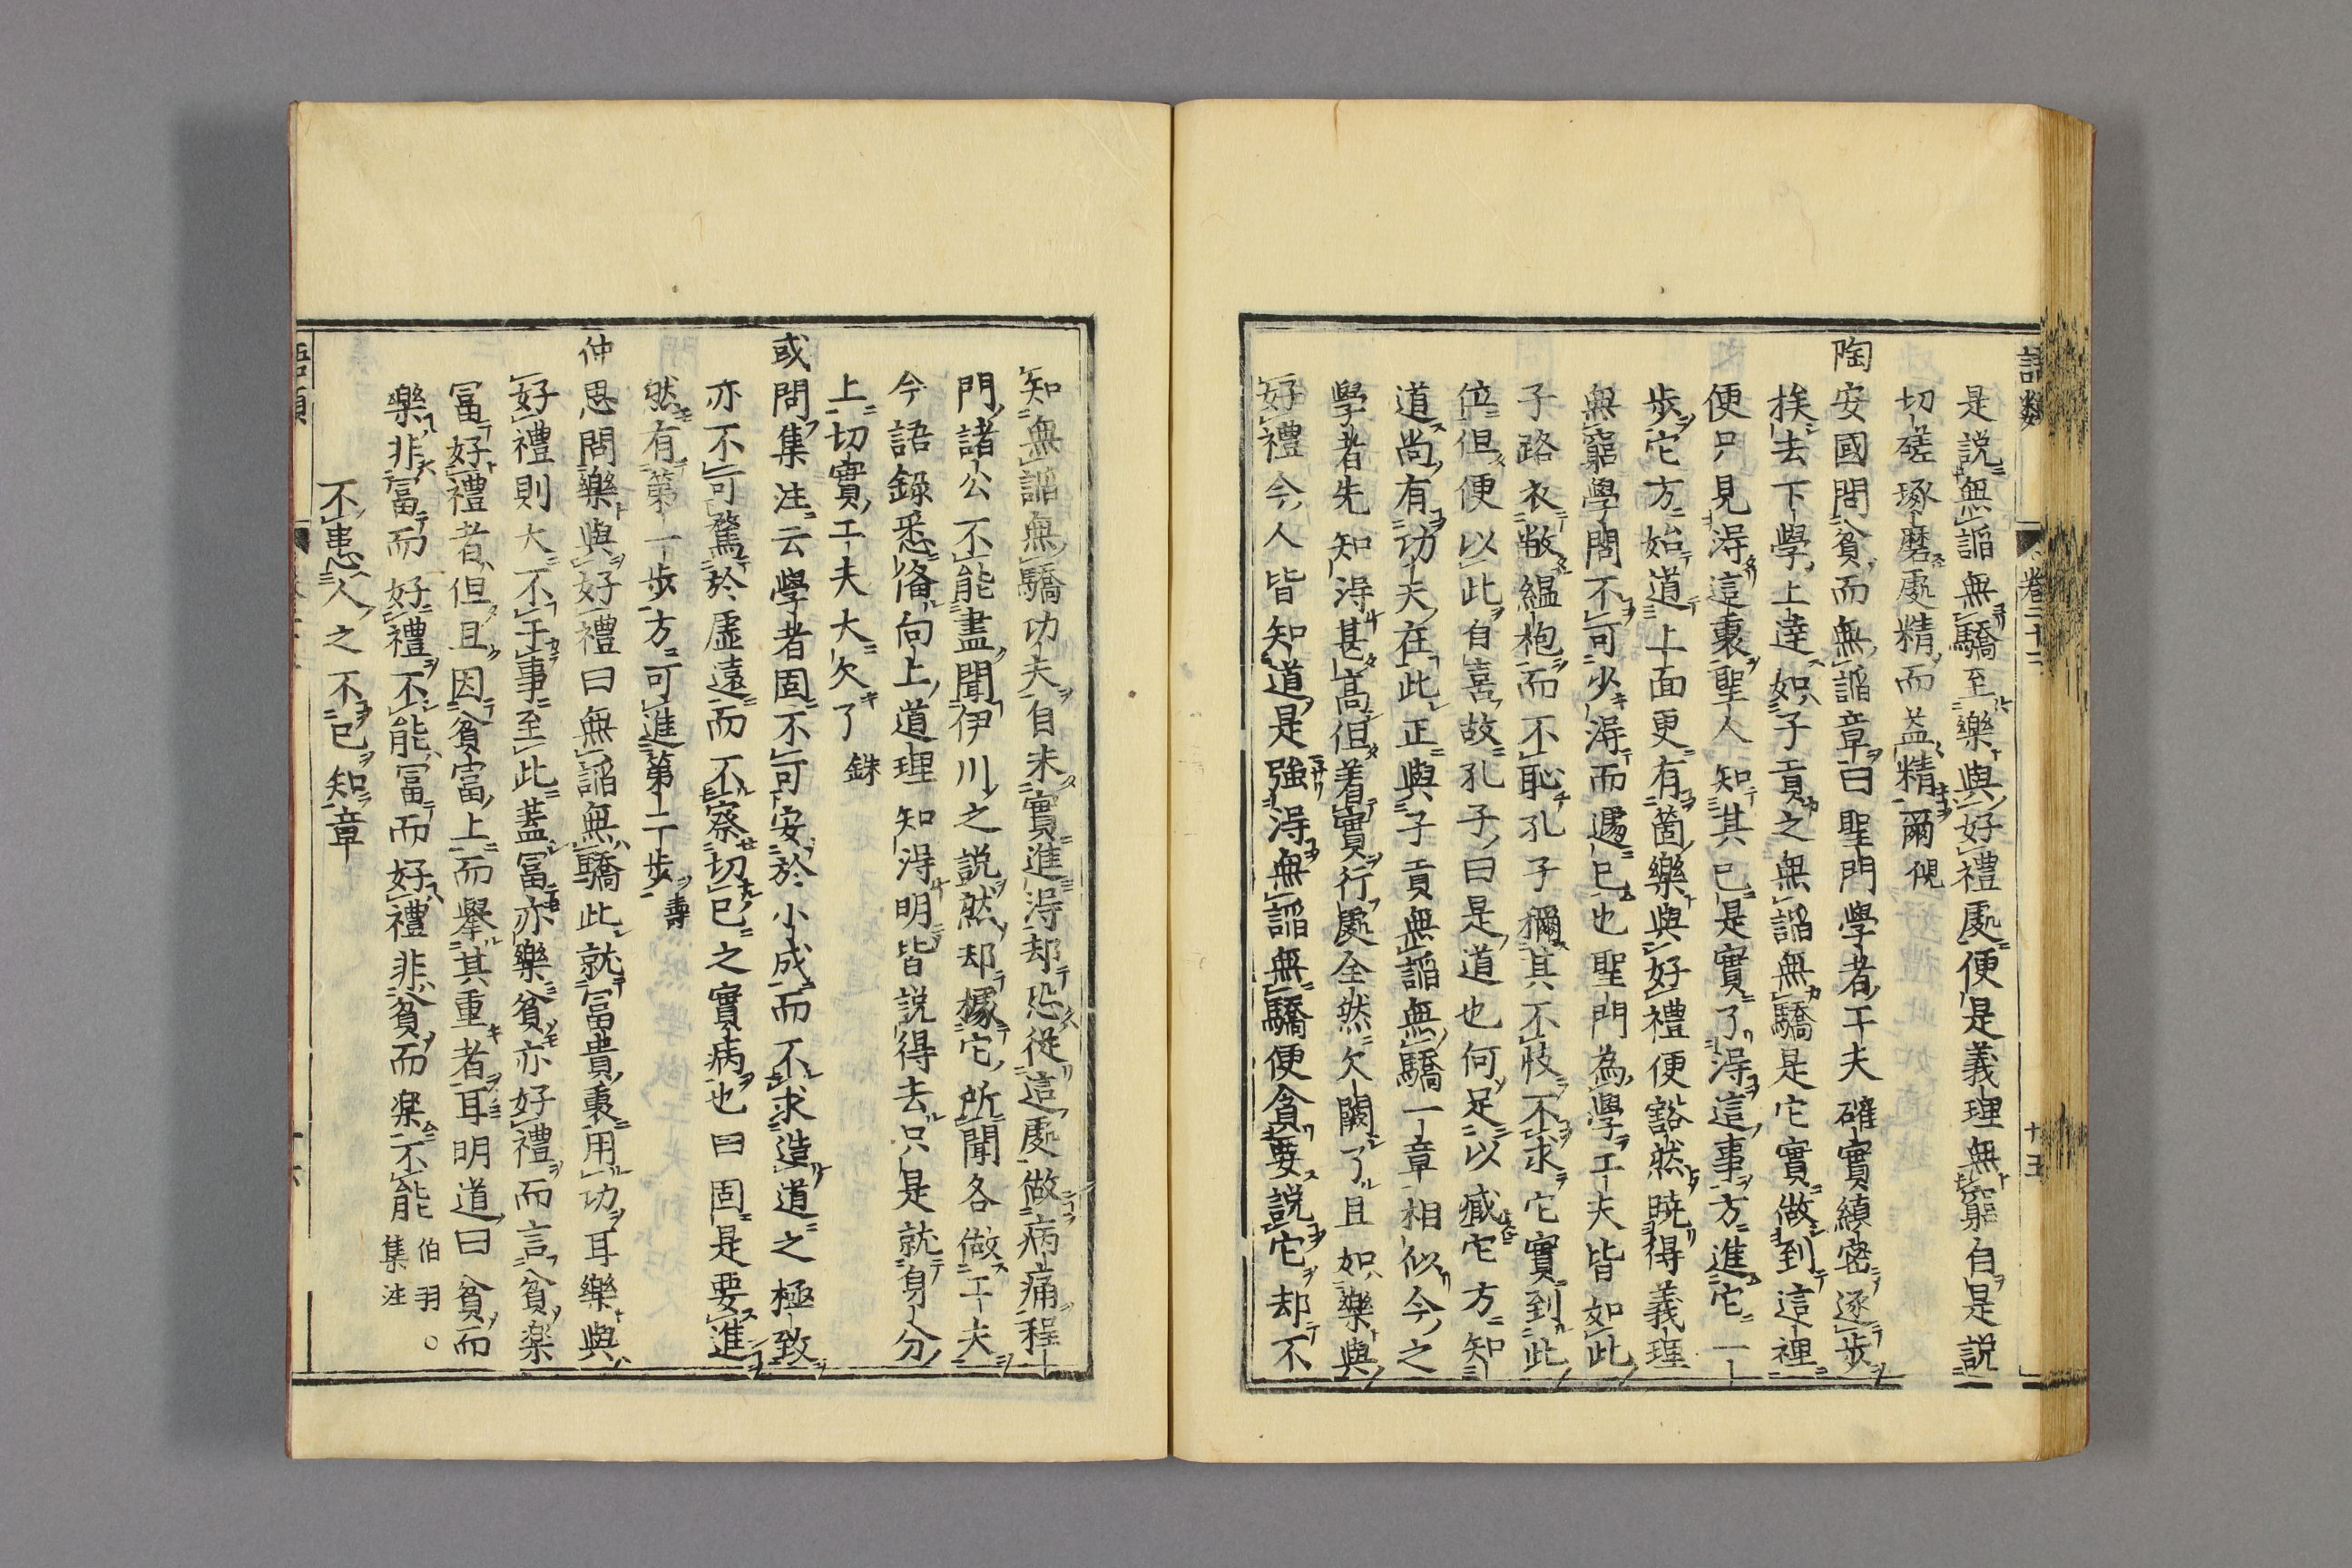 語類 卷二十二 十五
是説無諂無驕至樂與好禮處便是義理無窮自是説
切磋琢磨處精而益精爾 俔
陶安國問貧而無諂章曰聖門學者工夫確實縝密逐步
挨去下學上達如子貢之無諂無驕是它實做到這裡
便只見得這裏聖人知其已是實了得這事方進它一
步它方始道上面更有箇樂與好禮便豁然曉得義理
無窮學問不可少得而遽已也聖門為學工夫皆如此
子路衣敝縕袍而不恥孔子稱其不忮不求它實到此
位但便以此自喜故孔子曰是道也何足以臧它方知
道尚有功夫在此正與子貢無諂無驕一章相似今之
學者先知得甚高但着實行處全然欠闕了且如樂與
好禮今人皆知道是強得無諂無驕便貪要説它却不
知無諂無驕功夫自未實進得却恐從這處做病痛程
門諸公不能盡聞伊川之説然却據它所聞各做工夫
今語錄悉俻向上道理知得明皆説得去只是就身分
上切實工夫大欠了 銖
或問集注云學者固不可安於小成而不求造道之極致
亦不可騖於虛遠而不察切已之實病也曰固是要進
然有第一步方可進第二步 壽
仲思問樂與好禮曰無諂無驕此就富貴裏用功耳樂與
好禮則大不干事至此蓋富亦樂貧亦好禮而言貧樂
富好禮者但且因貧富上而舉其重者耳明道曰貧而
樂非富而好禮不能富而好禮非貧而樂不能 伯羽 集注○
不患人之不已知章
語類